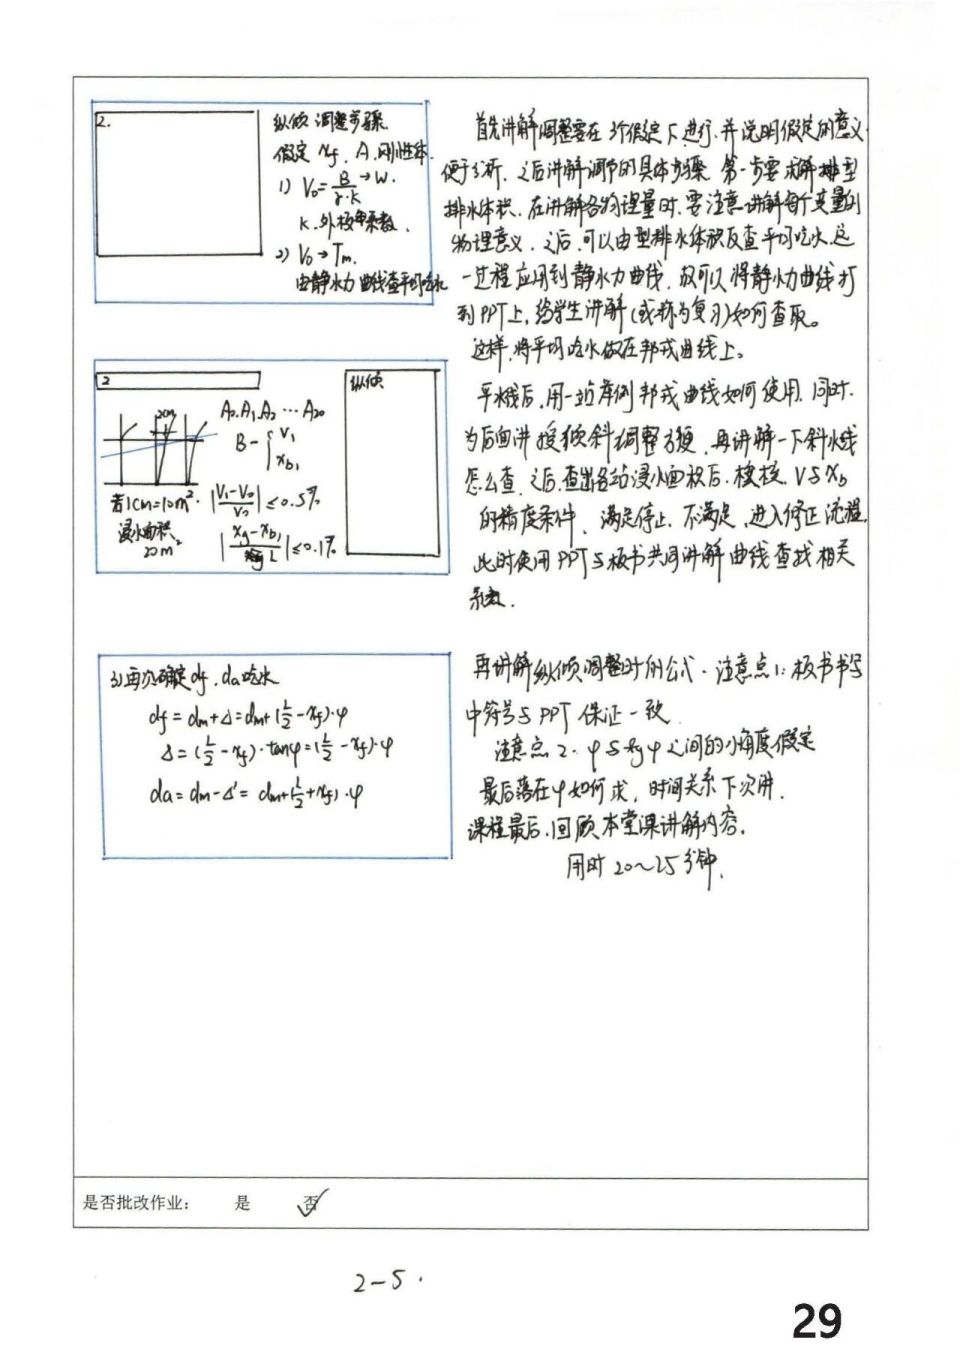 2.
纵倾 调整步骤
假定 xf. A. 刚性体.
1) V₀= B/γ·k →W.
k. 外板系数.
2) V₀→Tm.
由静水力曲线查平均吃水
首先讲解调整要在 3个假定下进行,并说明假定的意义.
便于分析. 之后讲解调节的具体步骤. 第一步要求解排型
排水体积. 在讲解各物理量时,要注意讲解每个变量的
物理意义. 之后,可以由型排水体积反查平均吃水,这
一过程应用到静水力曲线,故可以将静水力曲线打
到PPT上,给学生讲解(或称为复习)如何查取。
这样,将平均吃水做在邦戎曲线上。
2
纵倾
2cm
A₀.A₁.A₂ … A₂₀
B- { V₁
x_{b1}
若1cm=10m².
浸水面积
20m²
|V₁-V₀ / V₀| ≤0.5%
|x_g-x_{b1} / L| ≤0.1%
平水线后,用一站举例邦戎曲线如何使用. 同时.
为后面讲授倾斜调整方便,再讲解一下斜水线
怎么查. 之后,查出各站浸水面积后,校核 V与x_b
的精度条件. 满足停止. 不满足,进入修正流程.
此时使用PPT与板书共同讲解曲线查找相关
系数.
3)再次确定df.da吃水
df = dm+Δ=dm+(L/2-xf)·φ
Δ=(L/2-xf)·tanφ=(L/2-xf)·φ
da=dm-Δ'= dm+(L/2+xf)·φ
再讲解纵倾调整时的公式. 注意点1: 板书书写
中符号与PPT保证一致
注意点2. φ与tgφ之间的小角度假定
最后落在φ如何求, 时间关系下次讲.
课程最后.回顾本堂课讲解内容.
用时 20~25分钟.
是否批改作业: 是 否✓
2-5.
29